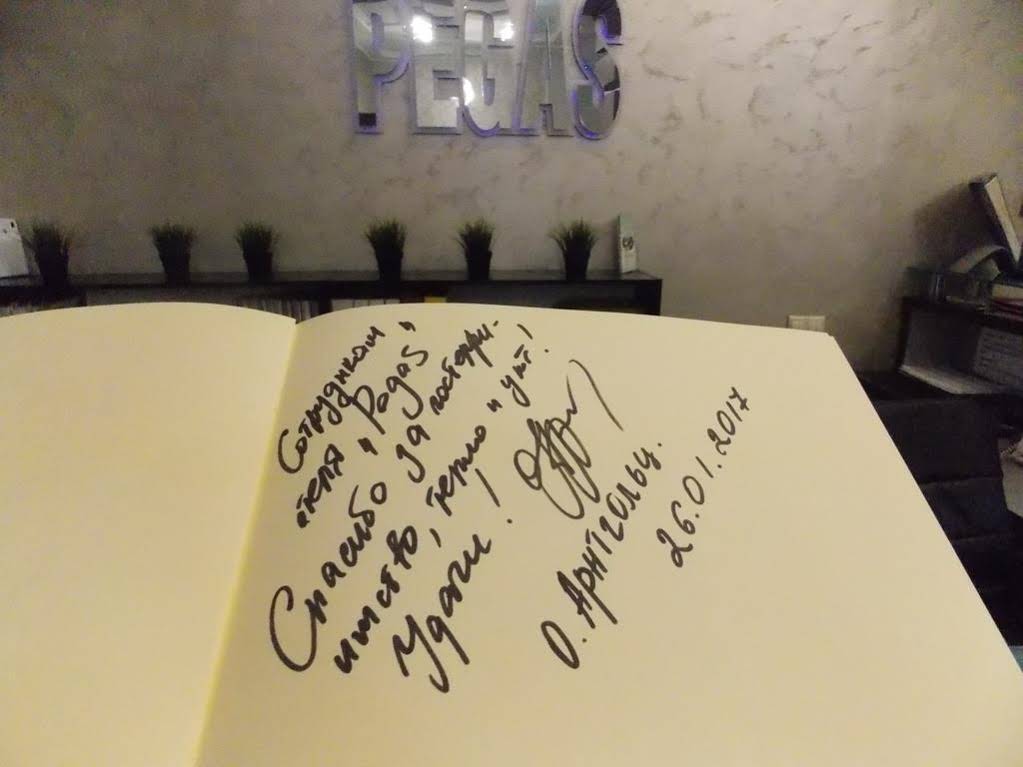 PEGAS
Сотрудникам
отеля "Pegas"
Спасибо за гостепри-
имство, тепло и уют!
Удачи!
О. Арнтгольц.
26.01.2017